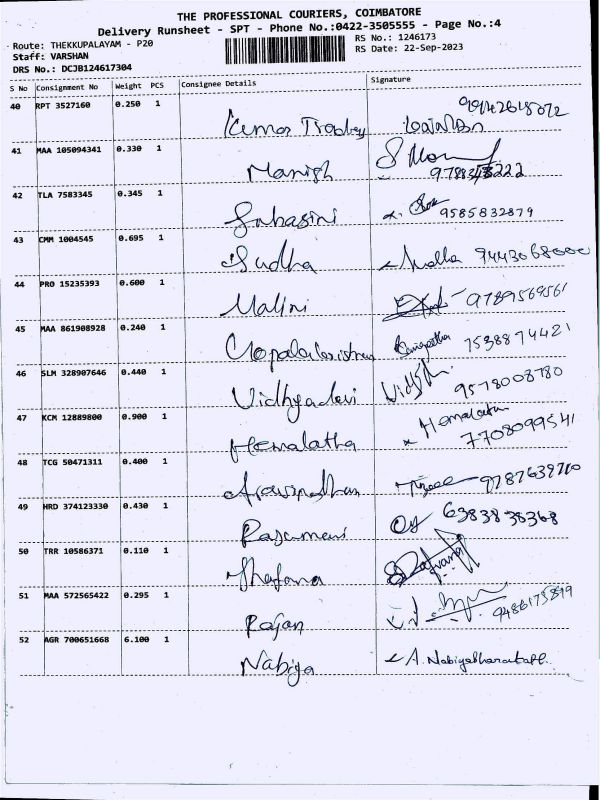 THE PROFESSIONAL COURIERS, COIMBATORE
Delivery Runsheet - SPT - Phone No.:0422-3505555 - Page No.:4
Route: THEKKUPALAYAM - P20 RS No.: 1246173
Staff: VARSHAN RS Date: 22-Sep-2023
DRS No.: DCJB124617304
S No Consignment No Weight PCS Consignee Details Signature
40 RPT 3527160 0.250 1 Kumar
41 MAA 105094341 0.330 1 Manish
42 TLA 7583345 0.345 1 Suhasini 9585832879
43 CMM 1004545 0.695 1 Sudha 9443068000
44 PRO 15235393 0.600 1 Malini 9789569561
45 MAA 861908928 0.240 1 Gopalakrishnan 7538874421
46 SLM 328907646 0.440 1 Vidhyadevi 9578008780
47 KCM 12889800 0.900 1 Hemalatha Hemalatha 7708099541
48 TCG 50471311 0.400 1
49 HRD 374123330 0.430 1 Rasumani 6383838368
50 TRR 10586371 0.110 1
51 MAA 572565422 0.295 1 Rajan 9486175899
52 AGR 700651668 6.100 1 Nabiya